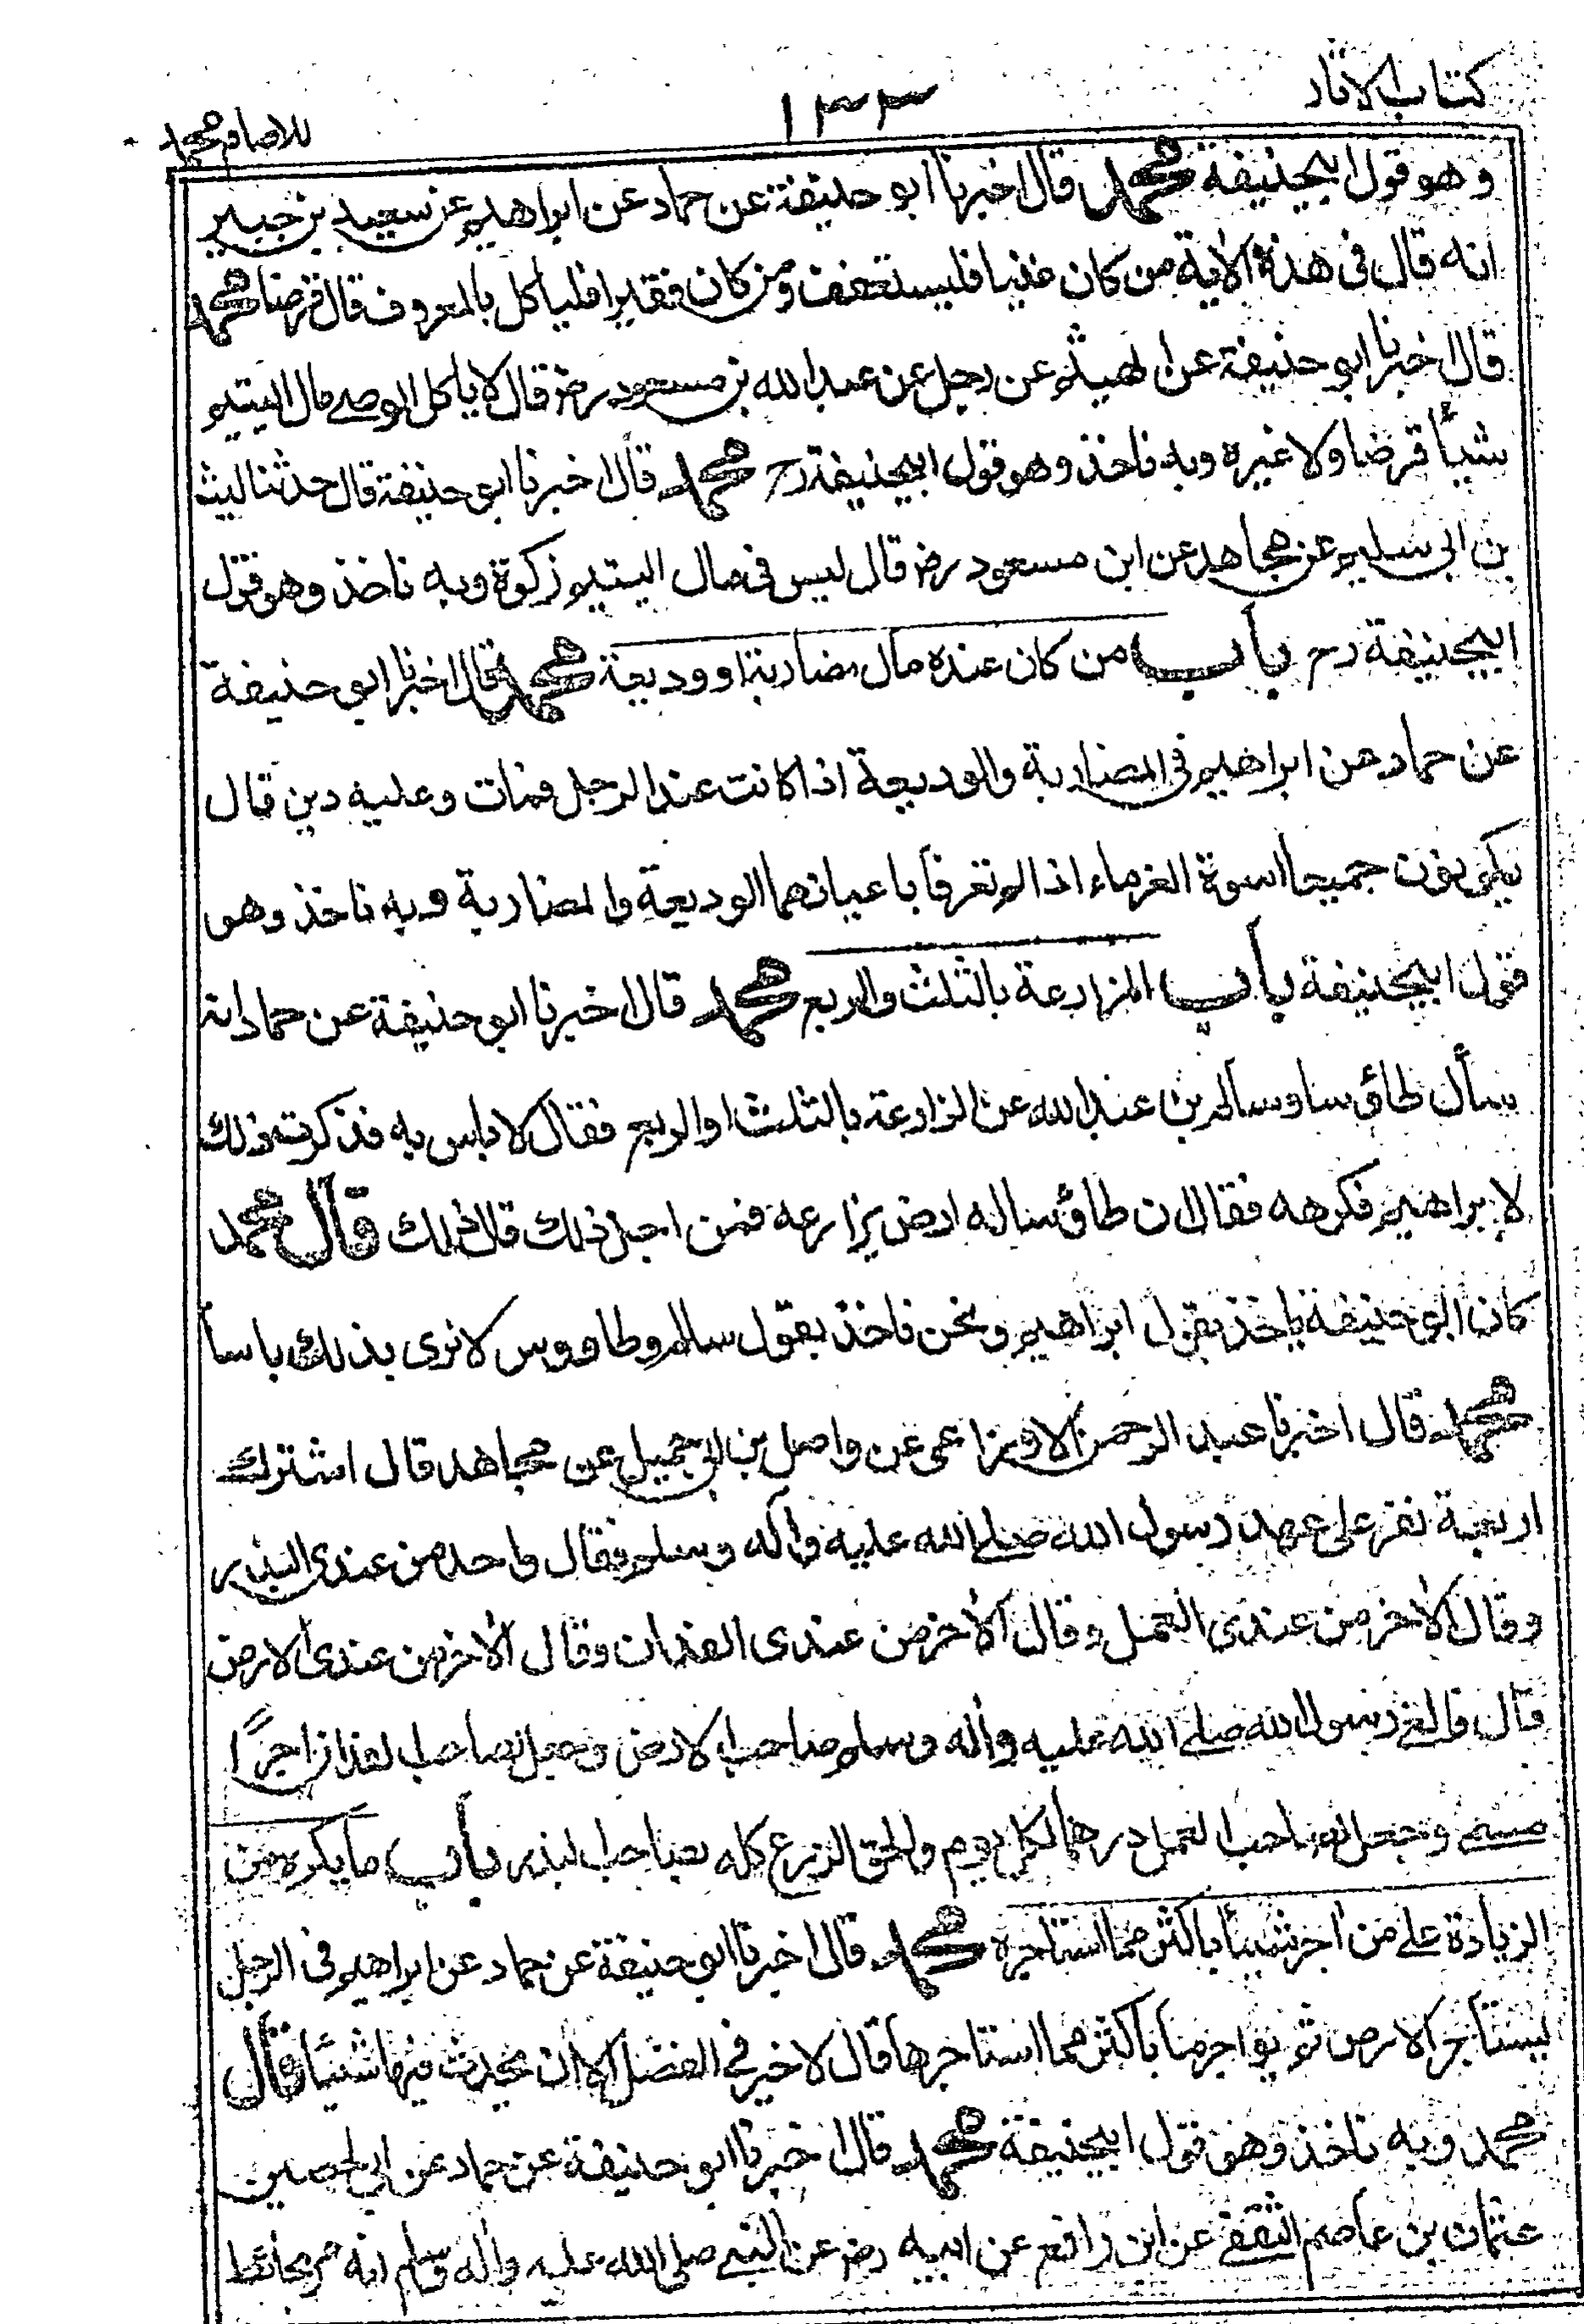 كتاب الاثار
١٣٣
للامام محمد
وهو قول ابيحنيفة محمد قال اخبرنا ابو حنيفة عن حماد عن ابراهيم عن سعيد بن جبير
انه قال فى هذه الاية من كان غنيا فليستعفف ومن كان فقيرا فلياكل بالمعروف قال قرضا محمد
قال اخبرنا ابو حنيفة عن الهيثم عن رجل عن عبد الله بن مسعود رض قال لا ياكل الوصے مال اليتيم
شيأ قرضا ولا غيره وبه ناخذ وهو قول ابيحنيفة رح محمد قال اخبرنا ابو حنيفة قال حدثنا ليث
بن ابى سليم عن مجاهد عن ابن مسعود رض قال ليس فى مال اليتيم زكوة وبه ناخذ وهو قول
ابيحنيفة رح باب من كان عنده مال مضاربة او وديعة محمد قال اخبرنا ابو حنيفة
عن حماد عن ابراهيم فى المضاربة والوديعة اذا كانت عند الرجل فمات وعليه دين قال
يكونون جميعا اسوة الغرماء اذا لم تعرفا باعيانهما الوديعة والمضاربة وبه ناخذ وهو
قول ابيحنيفة باب المزارعة بالثلث والربع محمد قال اخبرنا ابو حنيفة عن حماد انه
سأل طاؤسا وسالم بن عبد الله عن الزارعة بالثلث او الربع فقال لا باس به فذكرت ذلك
لابراهيم فكرهه فقال ان طاؤسا له ارض يزارعه فمن اجل ذلك قال ذلك قال محمد
كان ابو حنيفة ياخذ بقول ابراهيم ونحن ناخذ بقول سالم وطاووس لا نرى بذلك باسا
محمد قال اخبرنا عبد الرحمن الاوزاعى عن واصل بن ابى جميل عن مجاهد قال اشترك
اربعة نفر على عهد رسول الله صلے الله عليه واٰله وسلم فقال واحد من عندى البذر
وقال الاٰخر من عندى العمل وقال الاٰخر من عندى الفدان وقال الاٰخر من عندى الارض
قال فالغى رسول الله صلے الله عليه واٰله وسلم صاحب الارض وجعل لصاحب الفدان اجرًا
مسمے وجعل لصاحب العمل درهما لكل يوم والحق الزرع كله بصاحب البذر باب ما يكره من
الزيادة على من اٰجر شيئا باكثر مما استاجره محمد قال اخبرنا ابو حنيفة عن حماد عن ابراهيم فى الرجل
يستاجر الارض ثم يواجرها باكثر مما استاجرها قال لا خير فى الفضل الا ان يحدث فيها شيئا قال
محمد وبه ناخذ وهو قول ابيحنيفة محمد قال اخبرنا ابو حنيفة عن حماد عن ابى الحصين
عثمان بن عاصم الثقفے عن ابن رافع عن ابيه رض عن النبے صلى الله عليه واٰله وسلم انه مر بحائط